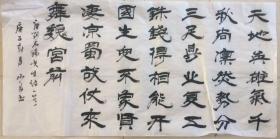 天地英雄氣千
秋尚凛然勢分
三足鼎業復五
銖錢得相能開
國生兒不象賢
凄凉蜀故伎來
舞魏宫前